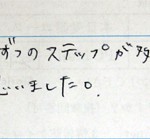 ずつのステップが
いました。